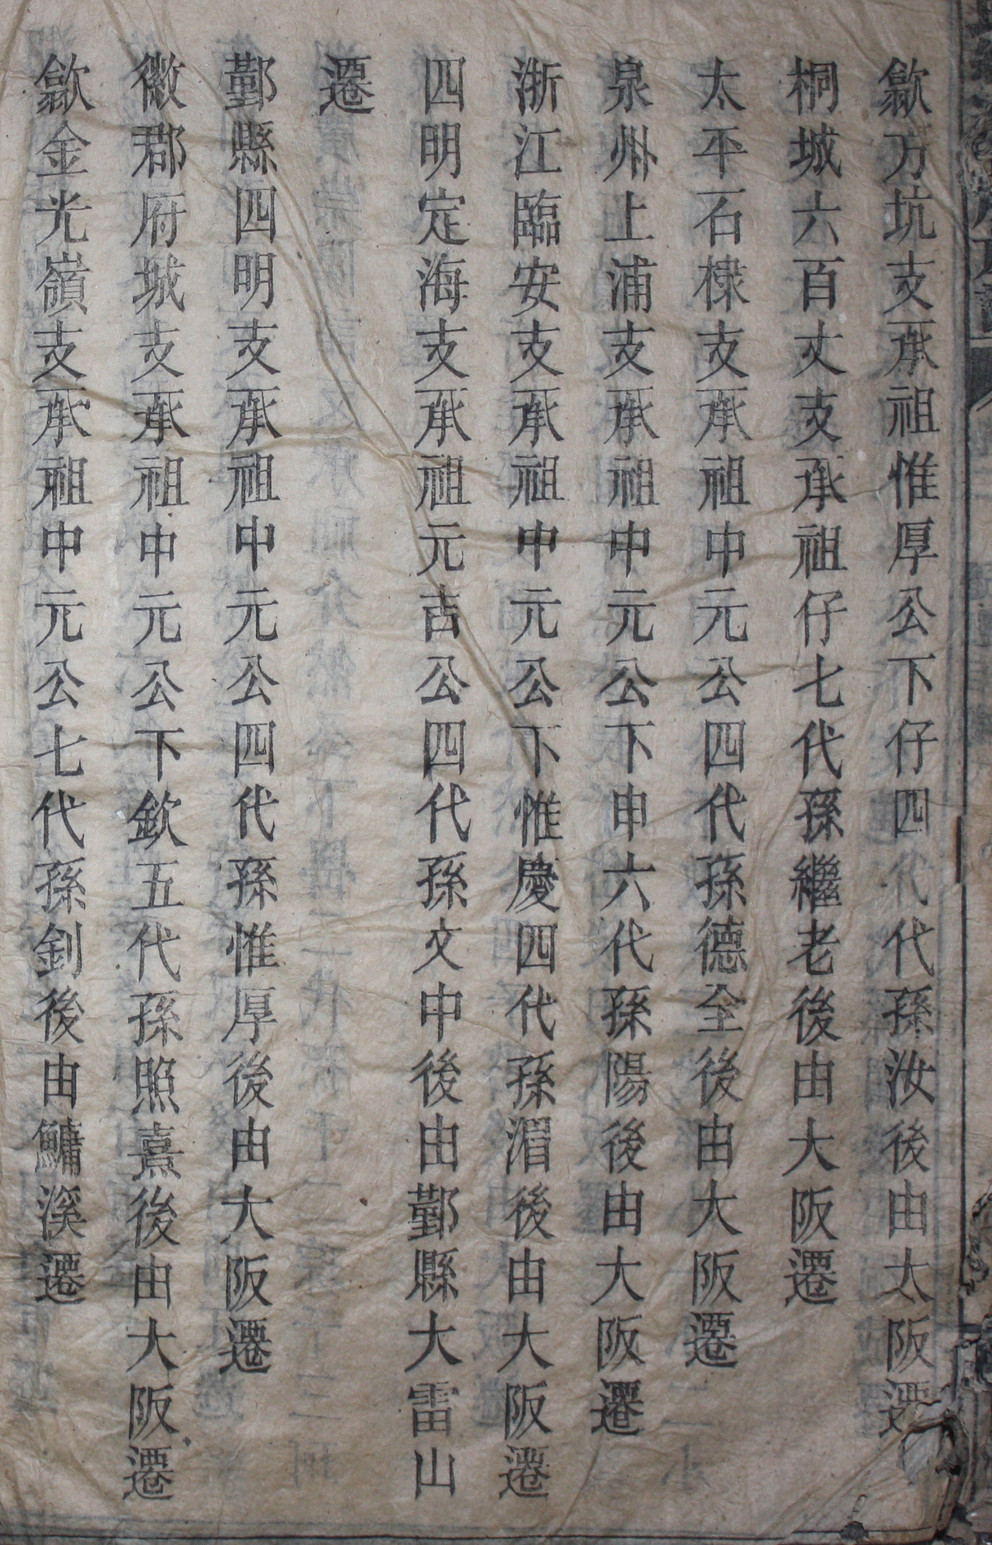 歙方坑支承祖惟厚公下仔四代代孫汝後由太阪遷
桐城六百丈支承祖仔七代孫繼老後由大阪遷
太平石棣支承祖中元公四代孫德全後由大阪遷
泉州上浦支承祖中元公下申六代孫陽後由大阪遷
浙江臨安支承祖中元公下惟慶四代孫湄後由大阪遷
四明定海支承祖元吉公四代孫文中後由鄞縣大雷山
遷
鄞縣四明支承祖中元公四代孫惟厚後由大阪遷
徽郡府城支承祖中元公下欽五代孫照熹後由大阪遷
歙金光嶺支承祖中元公七代孫釗後由鱅溪遷